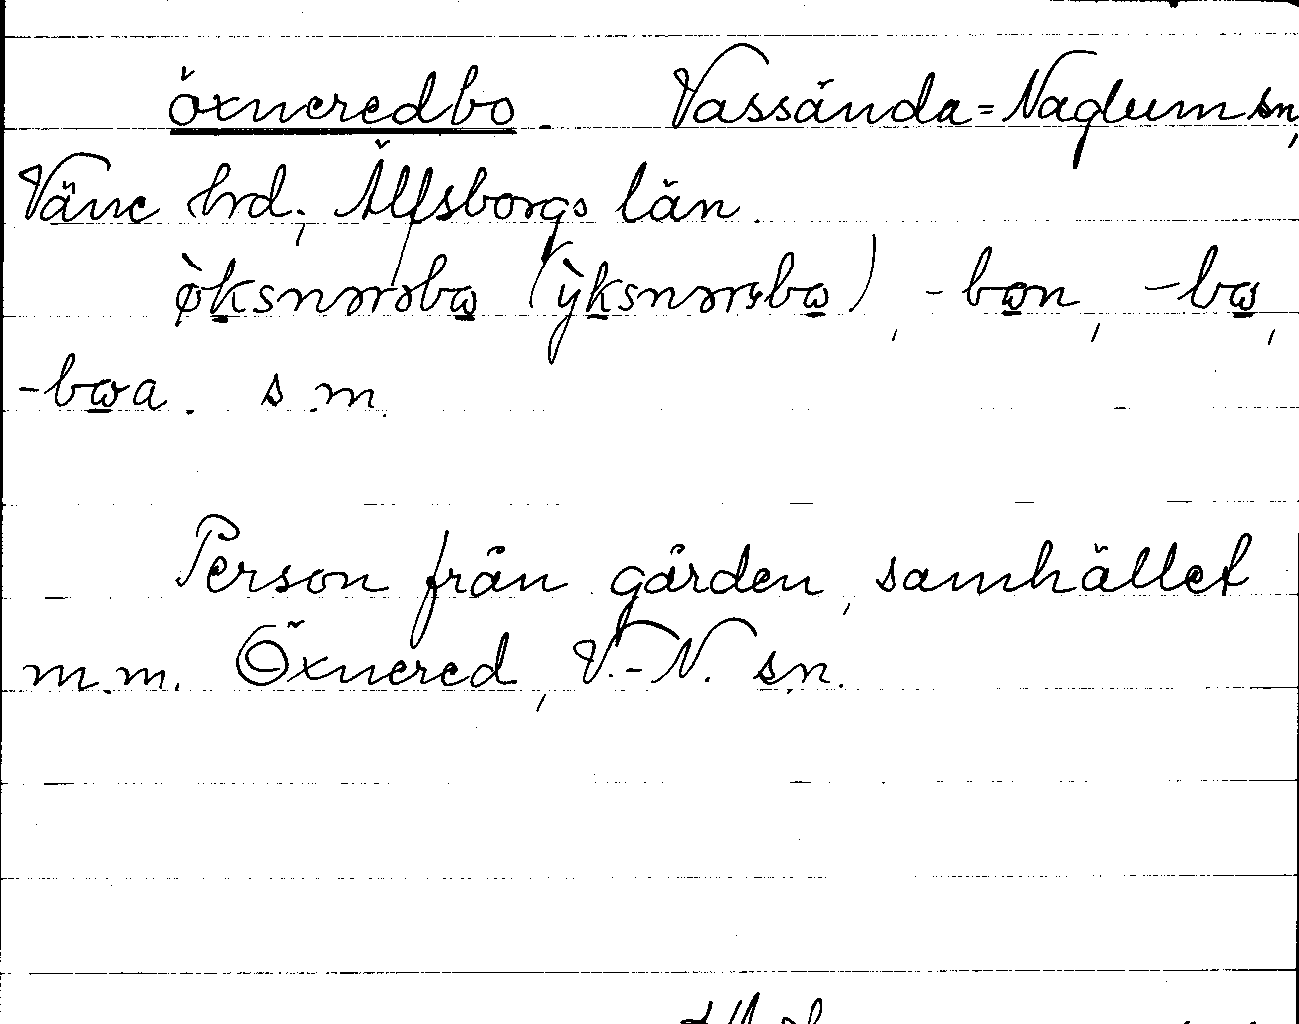 öxneredbo. Vassända=Naglum sn,
Väne hrd, Älfsborgs län.
ø̀ksnərrəbɷ (ỳksnərrəbɷ), -bɷn, -bɷ,
-bɷa. s.m.
Person från gården, samhället
m.m. Öxnered, V.-N. sn.